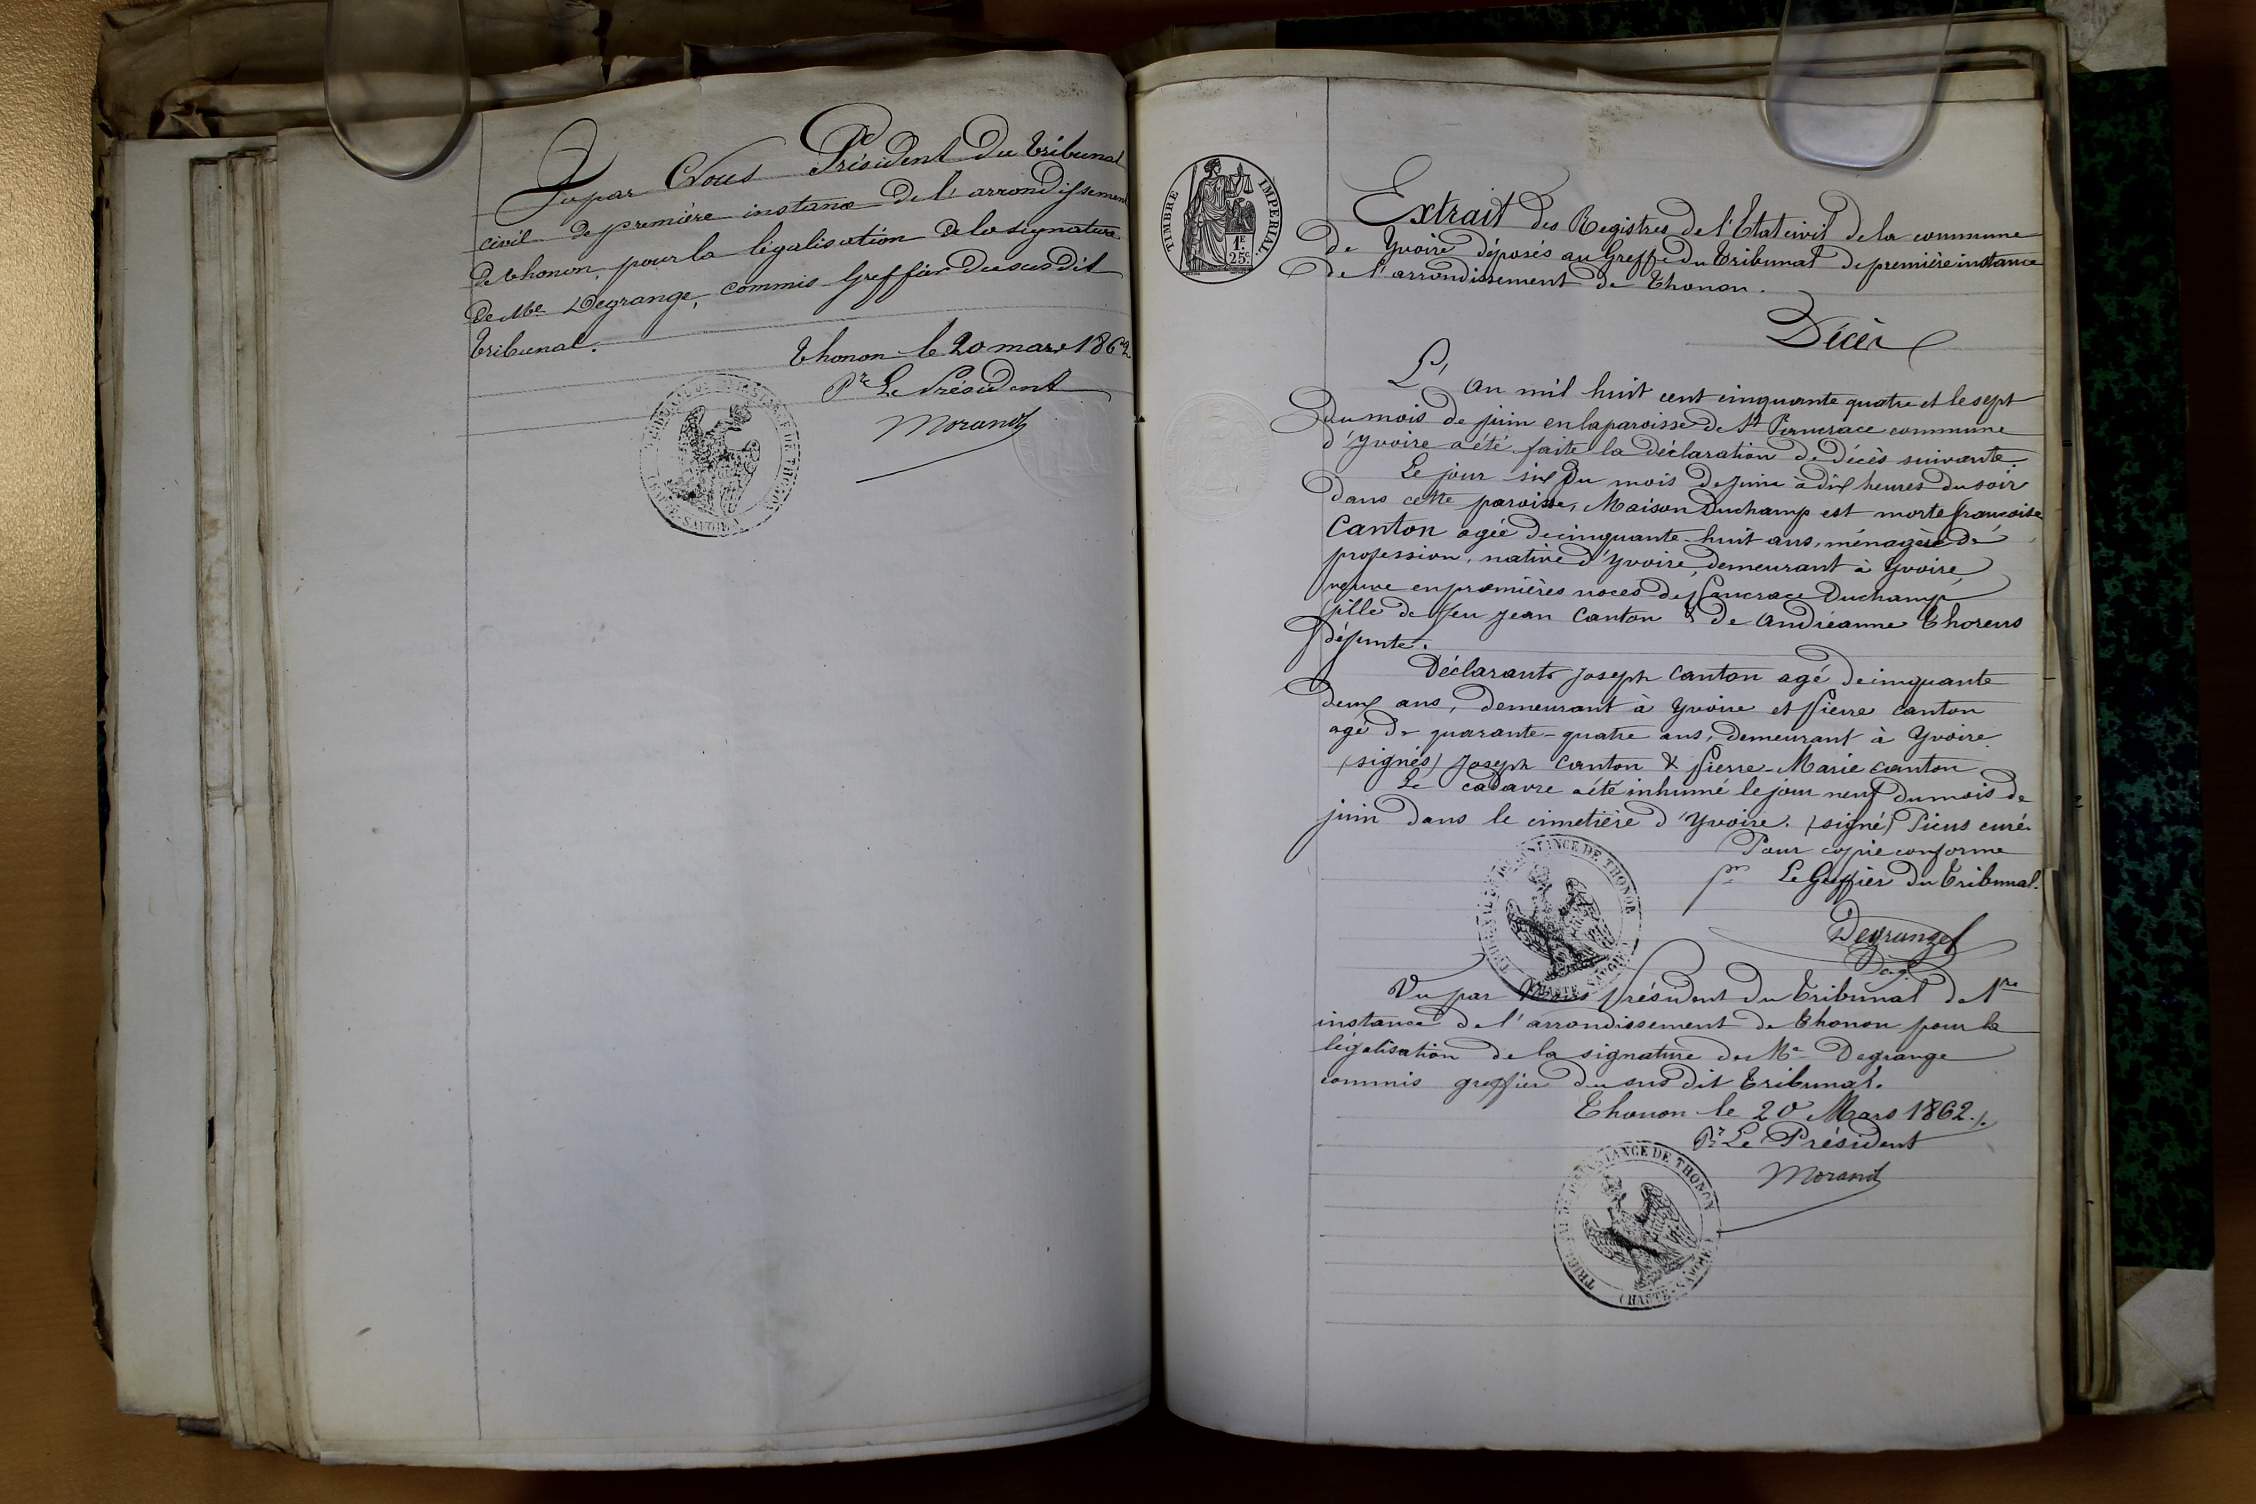 Vu par Nous Président du Tribunal
civil de première instance de l'arrondissement
de Thonon, pour la légalisation de la signature
de Me Degrange, commis-Greffier du susdit
Tribunal.
Thonon le 20 mars 1862
Pr Le Président
Morand
TIMBRE IMPERIAL
1F.
25c.
Extrait des Registres de l'Etat civil de la commune
de Yvoire déposés au Greffe du Tribunal de première instance
de l'arrondissement de Thonon.
Décès
L'an mil huit cent cinquante quatre et le sept
du mois de juin en la paroisse de St Pancrace commune
d'Yvoire a été faite la déclaration de décès suivante
Le jour six du mois de juin à dix heures du soir
dans cette paroisse, Maison Duchamp est morte françoise
Canton agée de cinquante-huit ans, ménagère de
profession, native d'Yvoire, demeurant à Yvoire,
veuve en premières noces de Pancrace Duchamp
fille de feu Jean Canton & de Andréanne Thorens
défunte.
Déclarants Joseph Canton agé de cinquante
deux ans, demeurant à Yvoire et Pierre Canton
agé de quarante-quatre ans, demeurant à Yvoire
(signés) Joseph Canton & Pierre-Marie Canton
Le cadavre a été inhumé le jour neuf du mois de
juin dans le cimetière d'Yvoire. (signé) curé.
Pour copie conforme
pr Le Greffier du Tribunal.
Degrange
c.g.
Vu par Nous Président du Tribunal de 1re
instance de l'arrondissement de Thonon pour la
légalisation de la signature de Me Degrange
commis greffier du sus dit Tribunal.
Thonon le 20 Mars 1862./.
Pr Le Président
Morand
INSTANCE DE THONON
(HAUTE-SAVOIE)